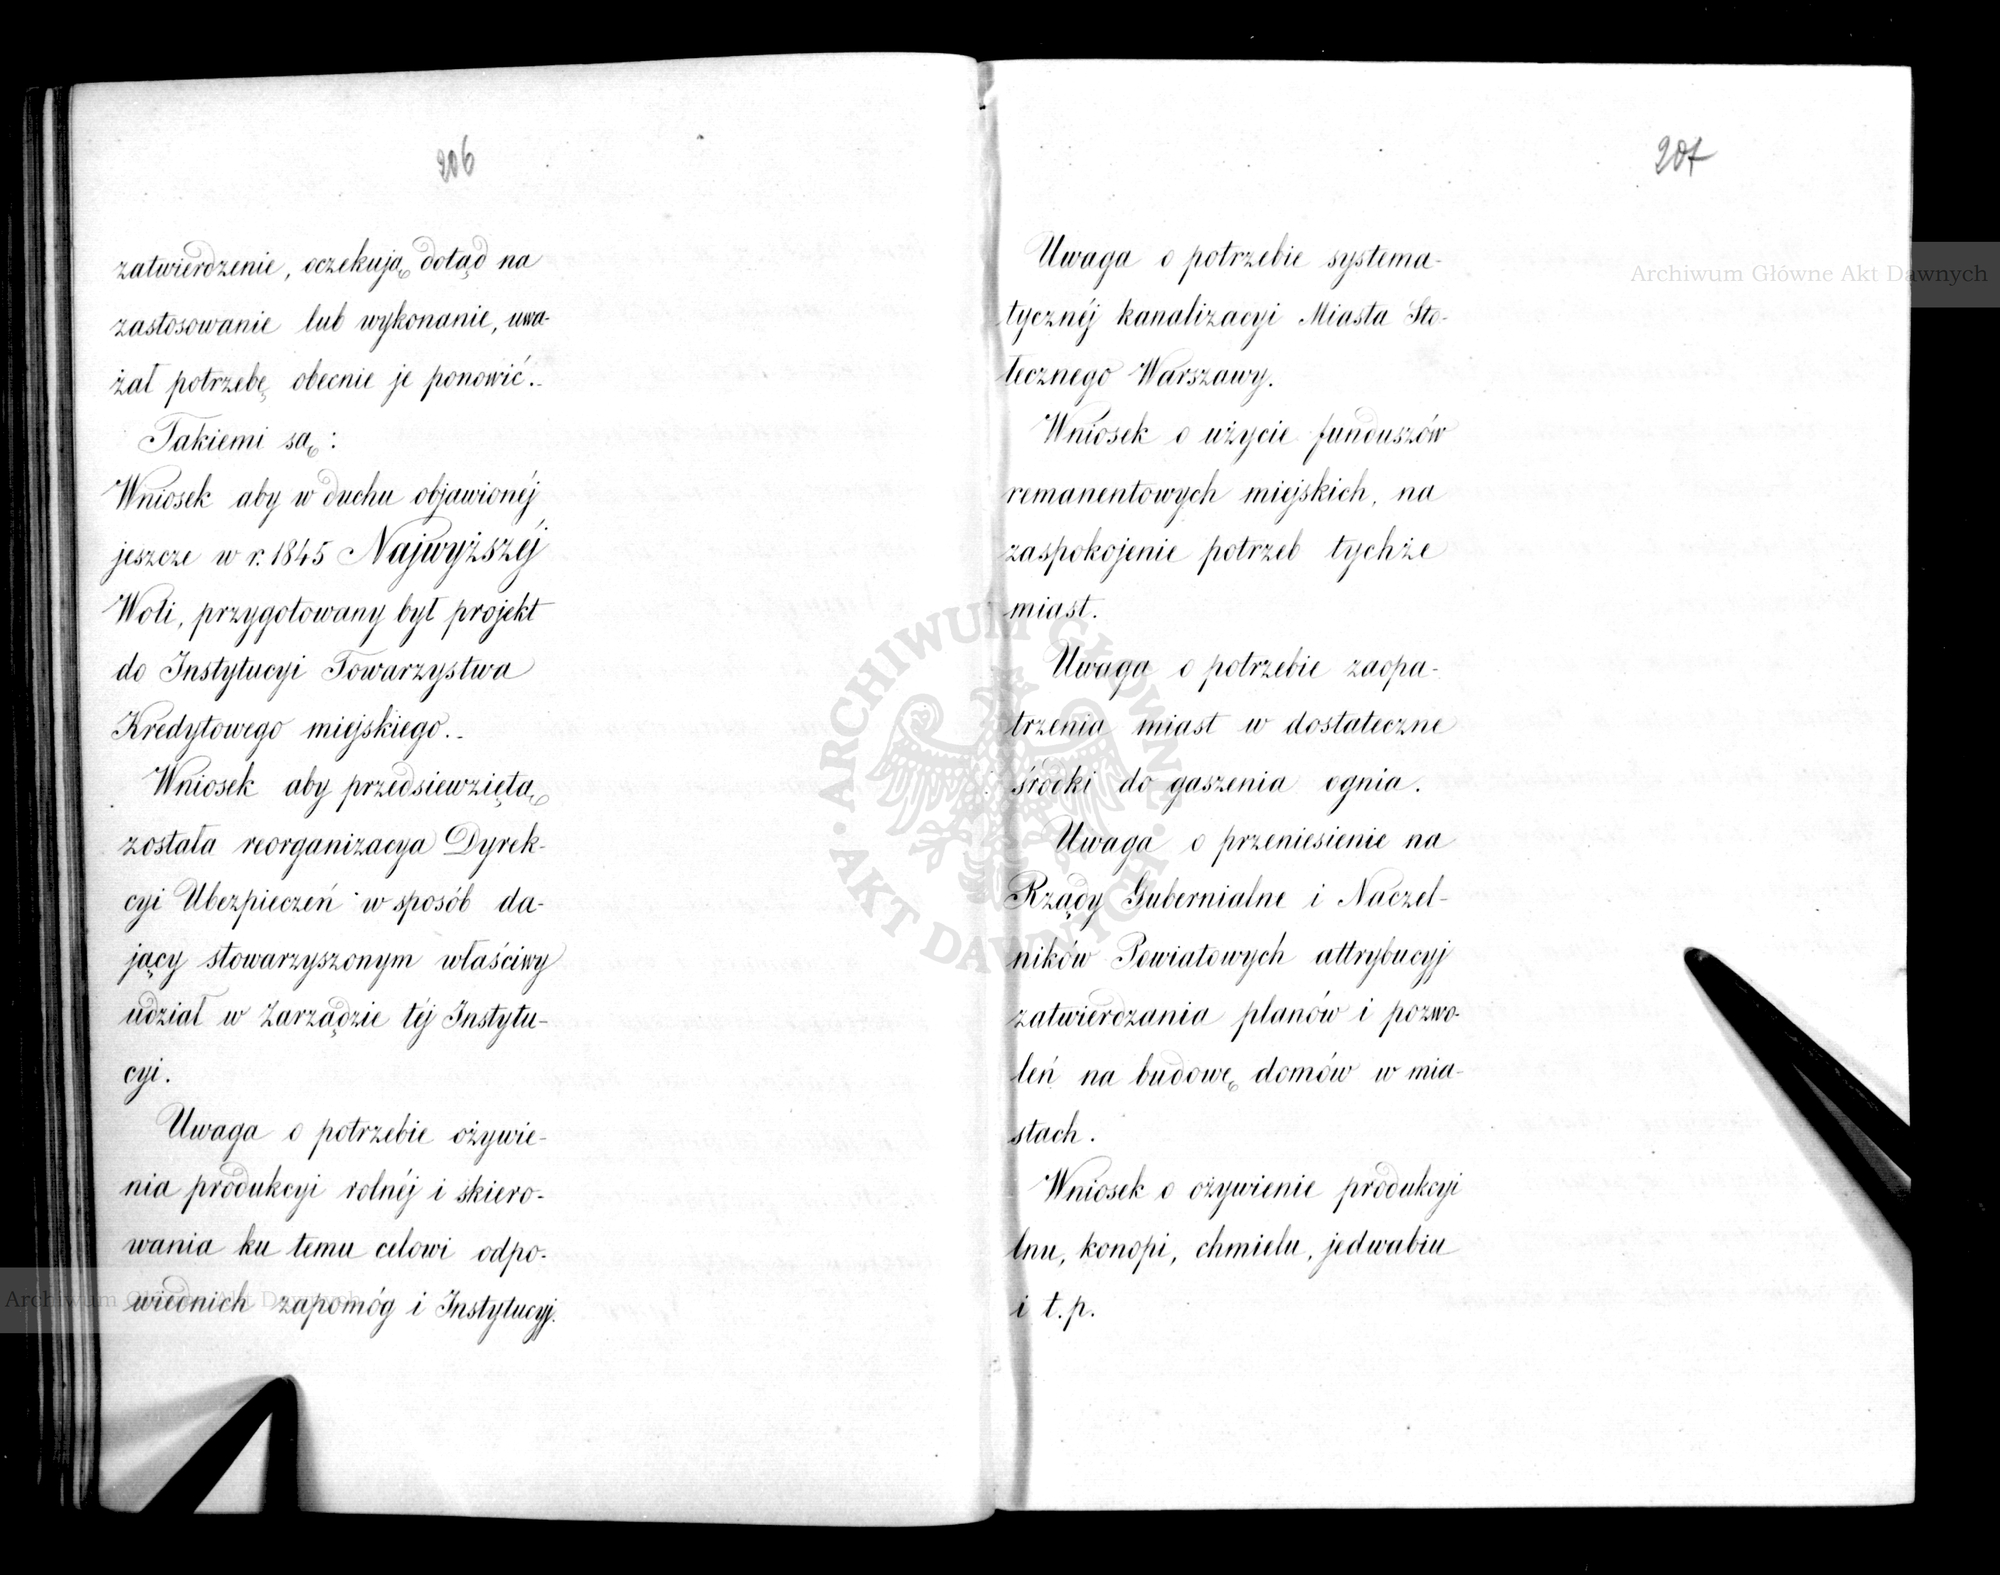 206
zatwierdzenie, oczekują dotąd na
zastosowanie lub wykonanie, uwa-
żał potrzebę obecnie je ponowić.
Takiemi są:
Wniosek aby w duchu objawionéj
jeszcze w r. 1845 Najwyższéj
Woli, przygotowany był projekt
do Instytucyi Towarzystwa
Kredytowego miejskiego.
Wniosek aby przedsiewziętą
została reorganizacya Dyrek-
cyi Ubezpieczeń w sposób da-
jący stowarzyszonym właściwy
udział w Zarządzie téj Instytu-
cyi.
Uwaga o potrzebie ożywie-
nia produkcyi rolnéj i skiero-
wania ku temu celowi odpo-
wiednich zapomóg i Instytucyj.
Archiwum Główne Akt Dawnych
207
Archiwum Główne Akt Dawnych
Uwaga o potrzebie systema-
tycznéj kanalizacyi Miasta Sto-
łecznego Warszawy.
Wniosek o użycie funduszów
remanentowych miejskich, na
zaspokojenie potrzeb tychże
miast.
Uwaga o potrzebie zaopa-
trzenia miast w dostateczne
środki do gaszenia ognia.
Uwaga o przeniesienie na
Rządy Gubernialne i Naczel-
ników Powiatowych attrybucyj
zatwierdzania planów i pozwo-
leń na budowę domów w mia-
stach.
Wniosek o ożywienie produkcyi
lnu, konopi, chmielu, jedwabiu
i t. p.
ARCHIWUM GŁÓWNE
AKT DAWNYCH